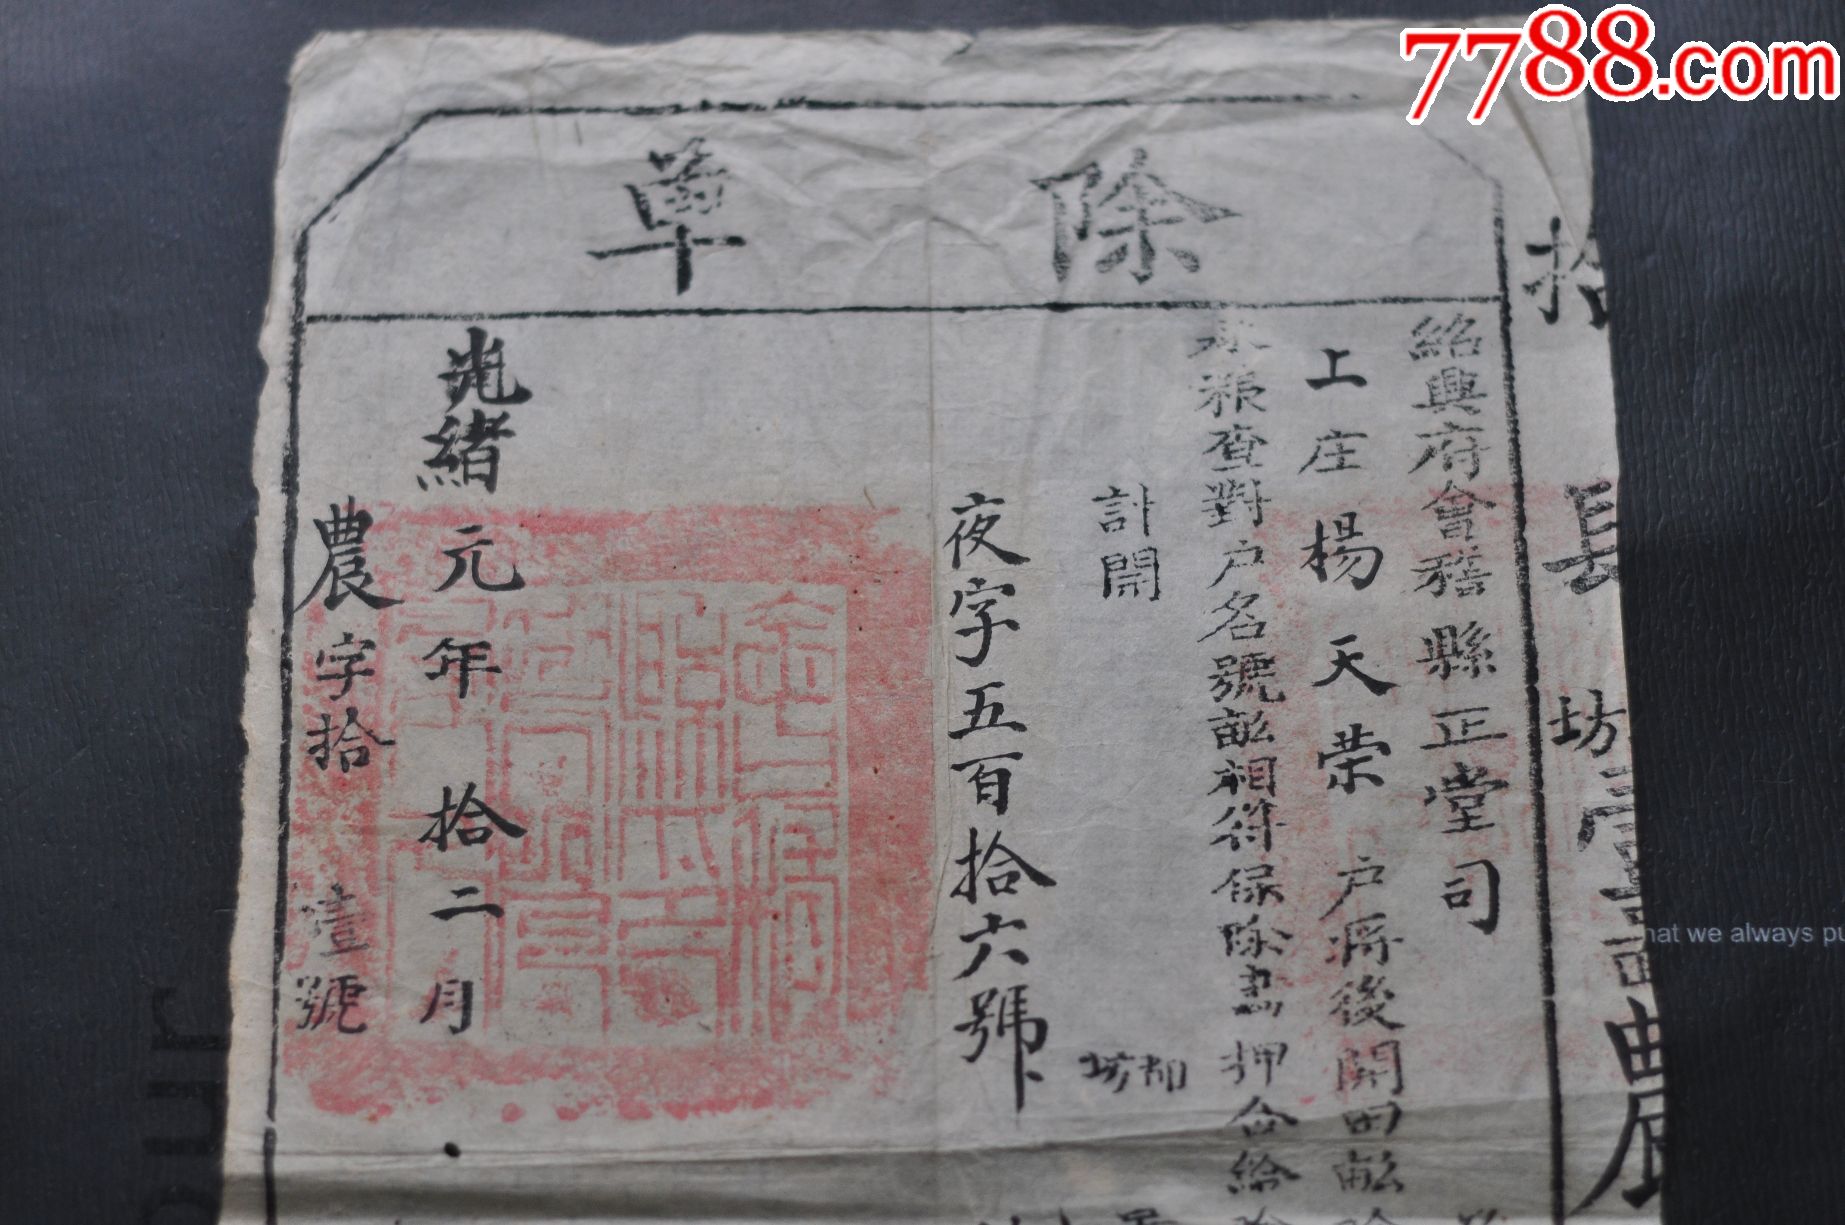 7788.com
除單
紹興府會稽縣正堂司
上庄楊天荣户將後開田畝
糧查對户名號畝相符保除畫押合給
計開
都
坊
夜字五百拾六號
光緒元年拾二月
農字拾壹號
拾
長
坊
農
hat we always pu
our